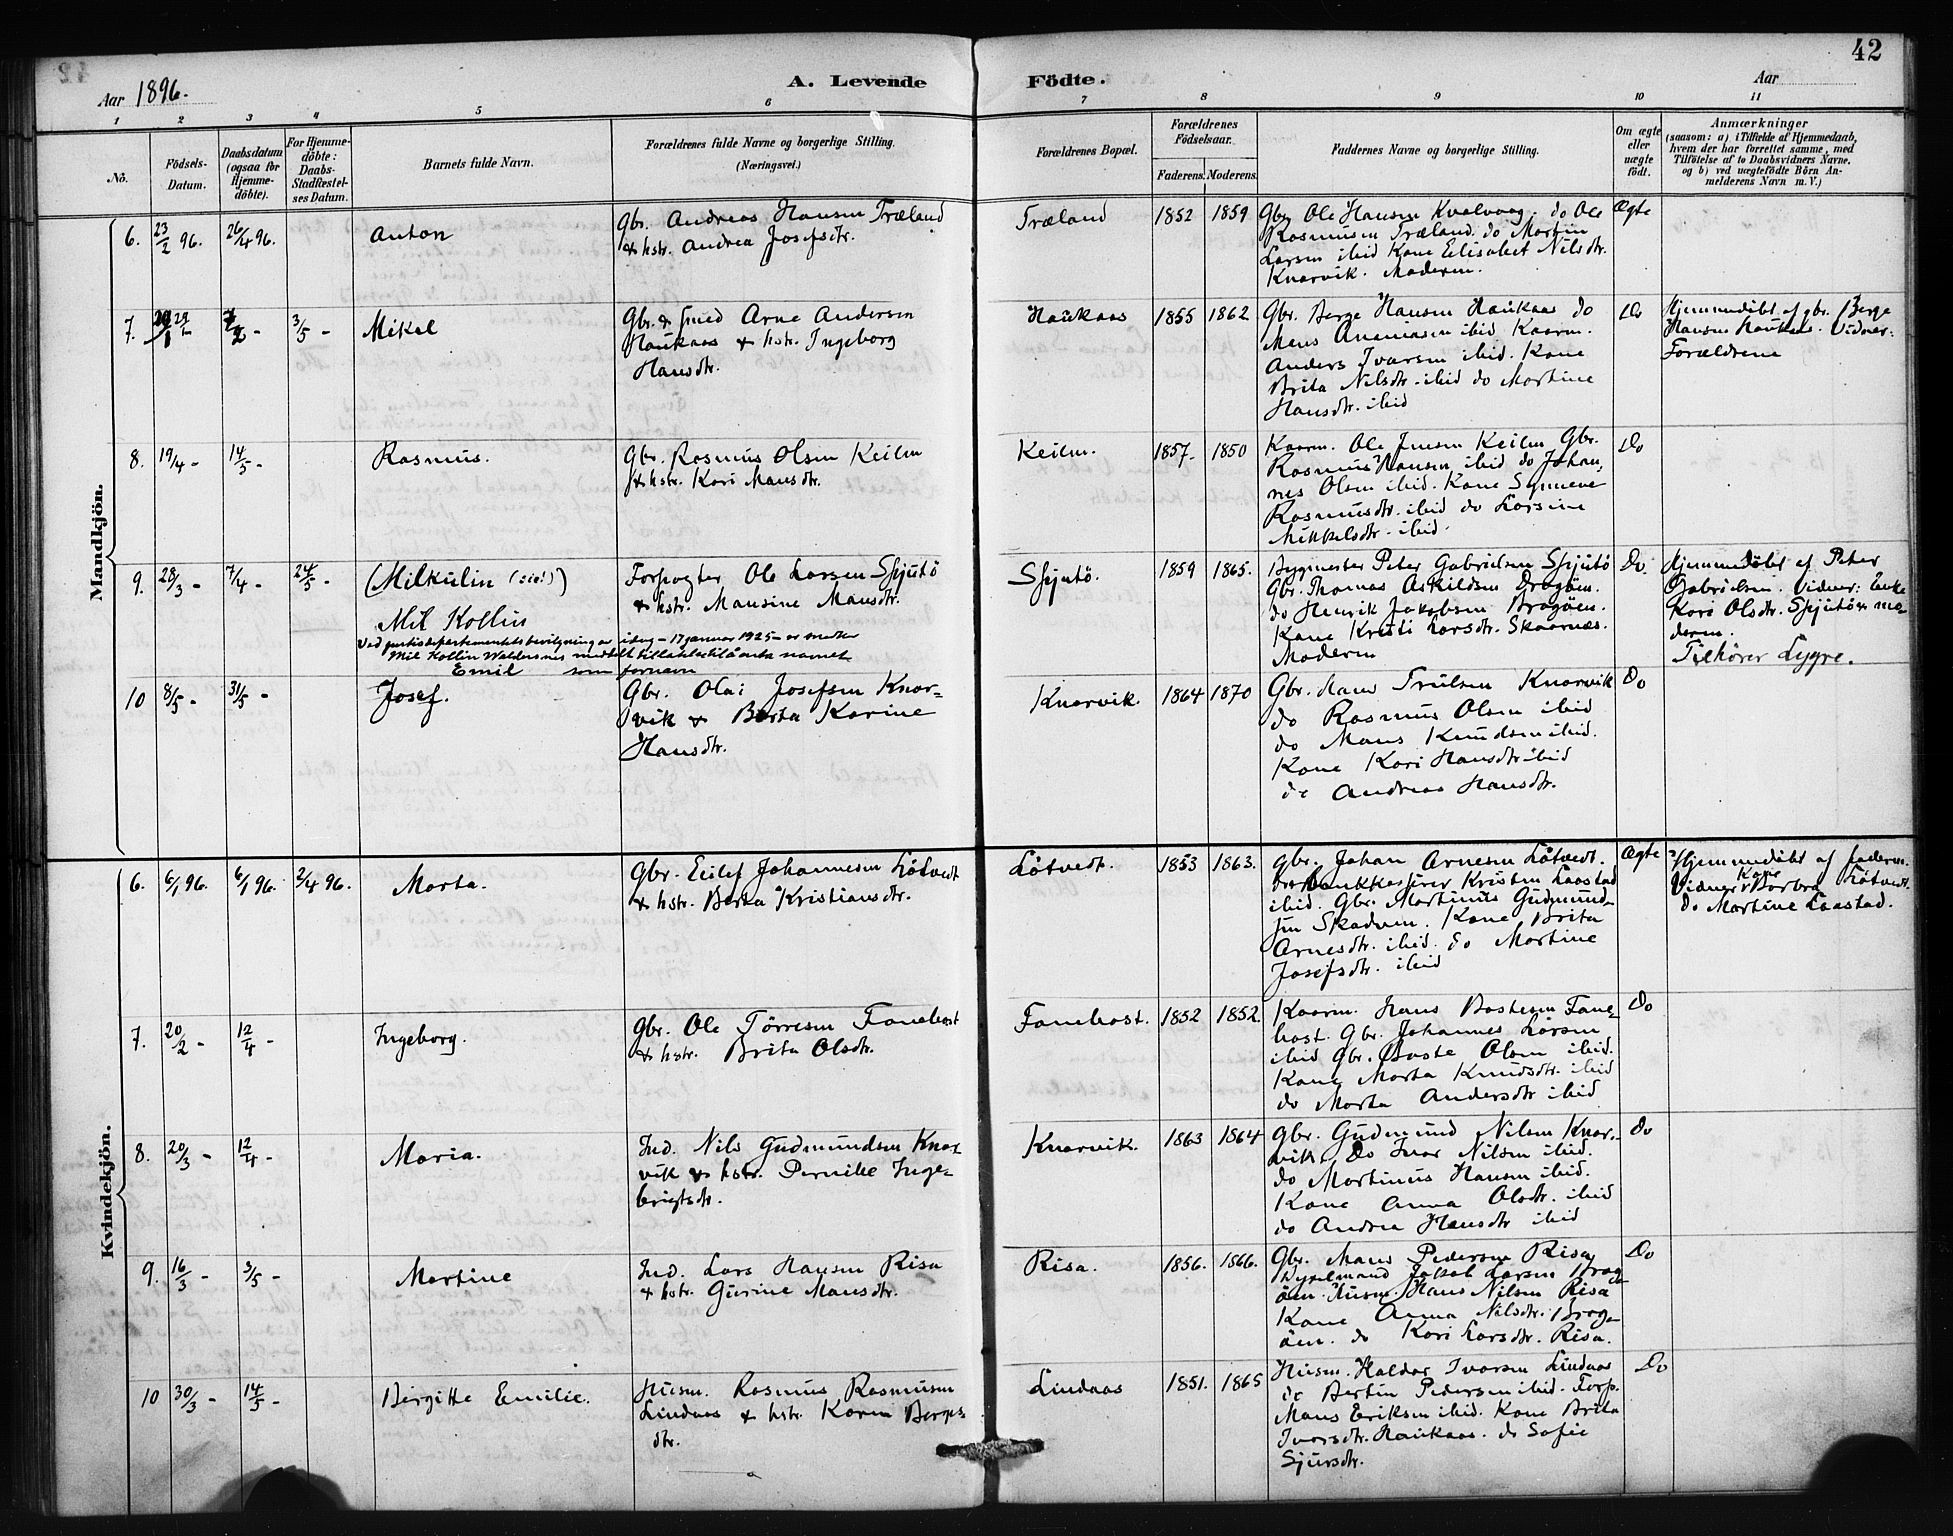 42
Aar 1896.
A. Levende Födte.
Aar
1 2 3 4 5 6 7 8 9 10 11
Nō.
Födsels-Datum.
Daabsdatum (ogsaa for Hjemme-döbte).
For Hjemme-döbte: Daabs-Stadfæstel-ses Datum.
Barnets fulde Navn.
Forældrenes fulde Navne og borgerlige Stilling.
(Næringsvei.)
Forældrenes Bopæl.
Forældrenes Födselsaar.
Faderens. Moderens.
Faddernes Navne og borgerlige Stilling.
Om ægte eller uægte födt.
Anmærkninger
(saasom: a) i Tilfælde af Hjemmedaab,
hvem der har forrettet samme, med
Tilföielse af to Daabsvidners Navne,
og b) ved uægtefödte Börn An-
melderens Navn m. V.)
Mandkjön.
6. 23/2 96. 26/4 96. Anton
Gbr. Andreas Hansen Træland
& hstr. Andrea Josefsdtr.
Træland 1852 1859
Gbr. Ole Hansen Kvalvaag. do Ole
Rasmusen Træland. do Martin
Larsen ibid Kone Elisabet Nilsdtr.
Knarvik. Moderen.
Ægte
7. 3/5 - Mikal
Gbr. & smed Arne Andersen
Haukaas & hstr. Ingeborg
Hansdtr.
Haukaas 1855 1862
Gbr. Berge Hansen Haukaas do
Mons Ananiasen ibid. Kaarm.
Anders Ivarsen ibid. Kone
Brita Nilsdtr. ibid do Martine
Hansdtr. ibid
Do
Hjemmedöbt af gbr. Berge
Hansen Haukaas. Vidner:
Forældrene
8. 19/4 - 14/5 - Rasmus.
Gbr. Rasmus Olsen Keilen
& hstr. Kari Mansdtr.
Keilen. 1857- 1850
Kaarm. Ole Jensen Keilen Gbr.
Rasmus Hansen ibid do Johan,
nes Olsen ibid. Kone Synneve
Rasmusdtr. ibid do Larsine
Mikkelsdtr. ibid.
Do
9. 28/3 - 7/4 - 24/5 - (Milkulin (sic!))
Mil Kollin
Ved justisdepartementets bevilgning av idag - 17 januar 1925 - er
Mil Kollin Waldersnes meddelt tillatelse til å anta navnet
Emil som fornavn
Forpagter Ole Larsen Spjutö
& hstr. Mansine Mansdtr.
Spjutö. 1859 1865.
Bygmester Peter Gabrielsen Spjutö
Gbr. Thomas Askildsen Dragöen.
do Henrik Jakobsen Bragöen.
Kone Kristi Larsdtr. Skaarnæs.
Moderen
Do.
Hjemmedöbt af Peter
Gabrielsen. Vidner: Enke
Kari Olsdtr. Spjutö & mo-
deren.
Tilhører Lygre.
10 8/5 - 31/5 - Josef.
Gbr. Olai Josefsen Knar-
vik & Berta Karine
Hansdtr.
Knarvik. 1864 1870
Gbr. Hans Trulsen Knarvik
do Rasmus Olsen ibid
do Mans Knudsen ibid.
Kone Kari Hansdtr ibid
do Andrea Hansdtr.
Do
Kvindekjön.
6. 6/1 96. 6/1 96. 2/4 96. Marta.
Gbr. Eilef Johannesen Lötvedt
& hstr. Berta Kristiansdtr.
Lötvedt. 1853 1863.
Gbr. Johan Arnesen Lötvedt.
Bankkasserer Kristen Laastad
ibid. Gbr. Martinus Gudmund-
sen Skadven. Kone Brita
Arnesdtr. ibid. do Martine
Josefsdtr. ibid
Ægte
Hjemmedöbt af faderen.
Vidner: Kone Barbra Lötvedt.
do Martine Laastad.
7. 20/2 - 12/4 - Ingeborg.
Gbr. Ole Törresen Fanebast
& hstr. Brita Olsdtr.
Fanebost. 1852 1852.
Kaarm. Hans Bastesen Fane-
bost. Gbr. Johannes Larsen
ibid gbr. Baste Olsen ibid.
Kone Marta Knudsdtr. ibid
do Marta Andersdtr ibid
Do
8. 20/3 - 12/4 - Maria.
Ind. Nils Gudmundsen Knar-
vik & hstr. Pernille Inge-
brigtsdtr.
Knarvik. 1863 1864
Gbr. Gudmund Nilsen Knar-
vik. Do Ivar Nilsen ibid.
do Martinus Hansen ibid.
Kone Anna Olsdtr. ibid
do Andrea Hansdtr ibid
Do
9. 16/3 - 3/5 - Martine
Ind. Lars Hansen Risa
& hstr. Gurine Mansdtr.
Risa. 1856. 1866.
Gbr. Mans Pedersen Risa
Jakob Larsen Brag-
öen. Husm. Hans Nilsen Risa
Kone Anna Nilsdtr. Brag-
öen. do Kari Larsdtr. Risa.
Do
10 30/3 - 14/5 - Birgitte Emilie.
Husm. Rasmus Rasmusen
Lindaas & hstr. Karen Berges-
dtr.
Lindaas 1851. 1865
Husm. Haldor Ivarsen Lindaas
do Bertin Pedersen ibid. Forp.
Mans Eriksen ibid. Kone Brita
Ivarsdtr. Haukaas. do Sofie
Sjursdtr.
Do